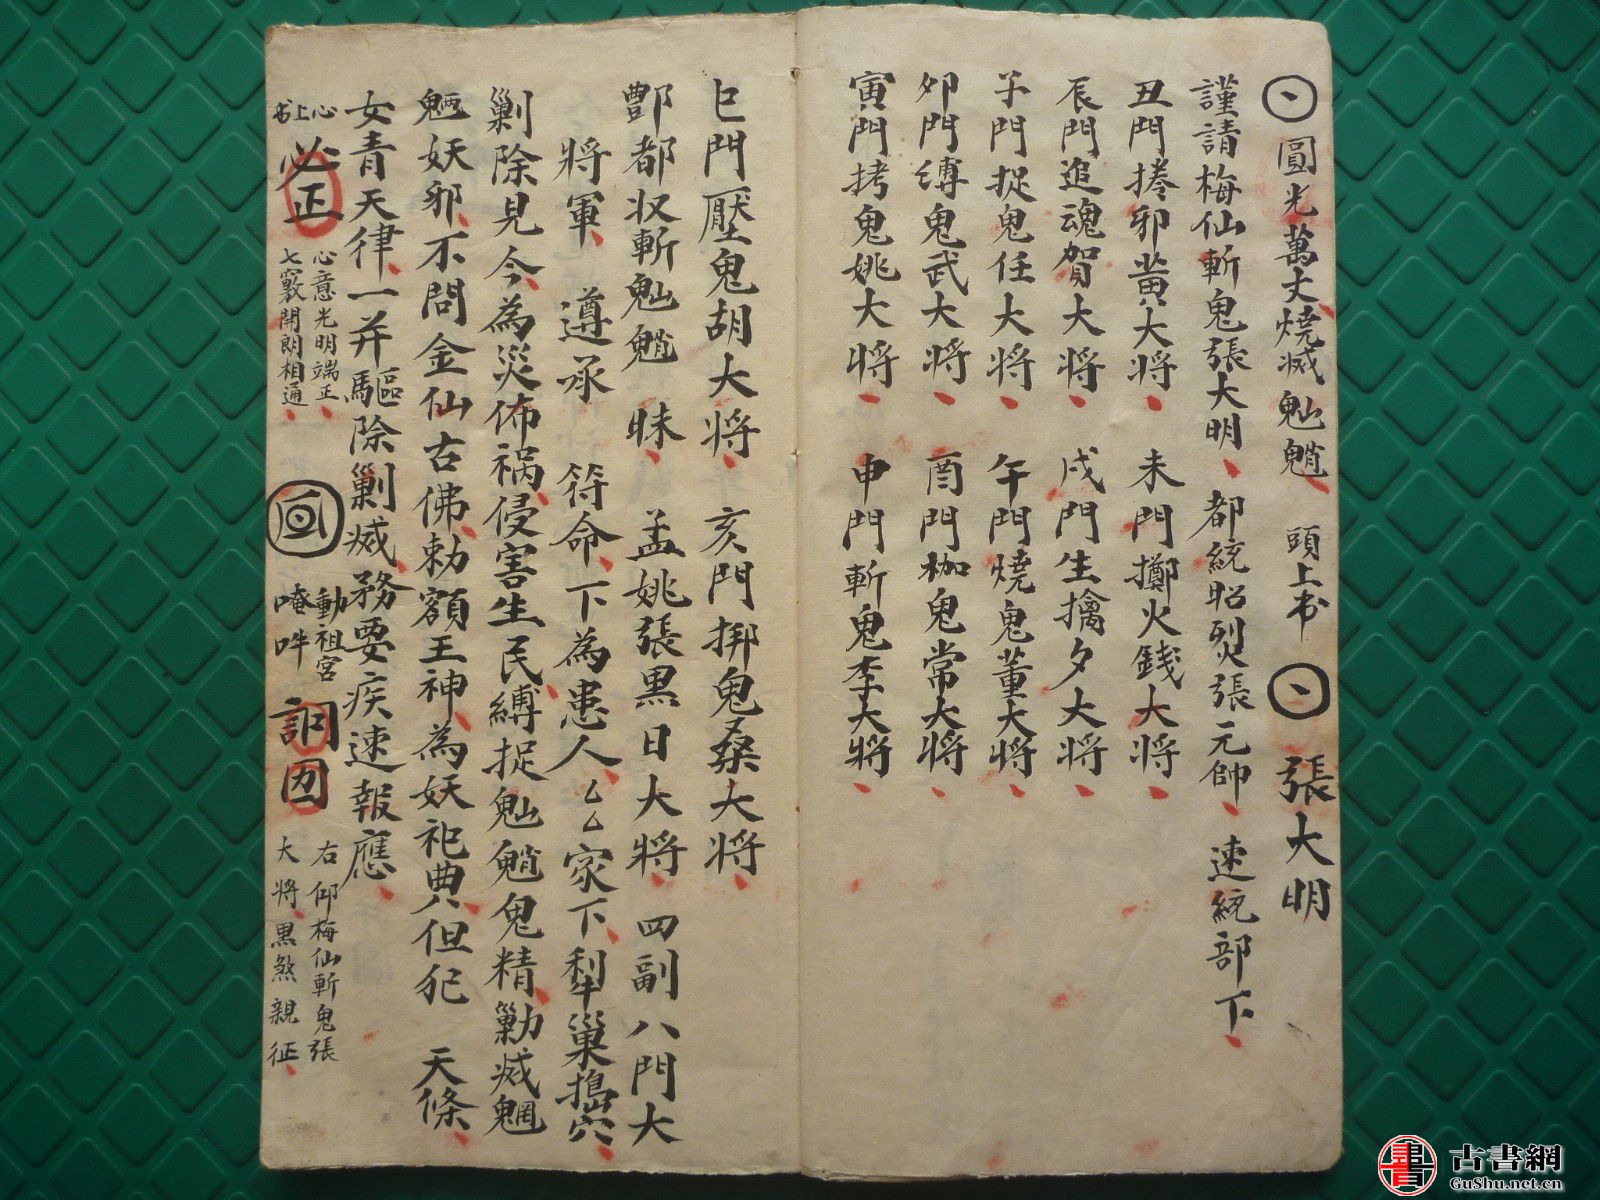 圓光萬丈燒滅魈 頭上书 張大明
謹請梅仙斬鬼張大明 都統昭烈張元帥 速統部下
丑門捲邪黄大將 未門擲火錢大將
辰門追魂賀大將 戌門生擒夕大將
子門捉鬼任大將 午門燒鬼董大將
夘門縛鬼武大將 酉門枷鬼常大將
寅門拷鬼姚大將 申門斬鬼李大將
巳門壓鬼胡大將 亥門挷鬼桑大將
酆都収斬魈 孟姚張黑日大將 四副八門大
將軍 遵承 符命下為患人厶厶家下犁巢搗穴
剿除見今為災佈禍侵害生民縛捉魈鬼精勦滅魍
魎妖邪不問金仙古佛勅額王神為妖祀典但犯 天條
女青天律一并驅除剿滅務要疾速報應
心上书 必正 心意光明端正
七竅開朗相通
動祖宮
唵吽
右仰梅仙斬鬼張
大將黑煞親征
古書網
GuShu.net.cn